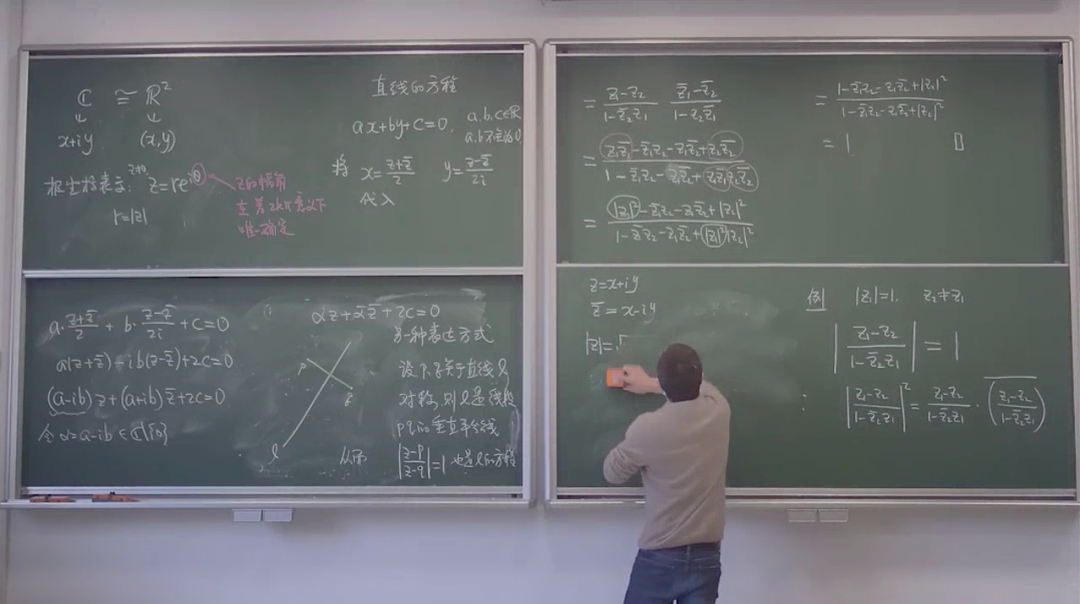 ℂ ≅ ℝ²
x+iy (x,y)
极坐标表示: z≠0 z=re^{iθ}
r=|z|
z的幅角
在差2kπ意义下
唯一确定
直线的方程
ax+by+c=0, a,b,c∈ℝ
a,b不全为0
将 x=\frac{z+\bar{z}}{2} y=\frac{z-\bar{z}}{2i}
代入
a·\frac{z+\bar{z}}{2} + b·\frac{z-\bar{z}}{2i} + c=0
a(z+\bar{z})-ib(z-\bar{z})+2c=0
(a-ib)z+(a+ib)\bar{z}+2c=0
令α=a-ib∈ℂ\{0}
αz+\bar{α}\bar{z}+2c=0
另一种表达方式
设p,q关于直线l
对称,则l是线段
pq的垂直平分线
从而 |\frac{z-p}{z-q}|=1 也是l的方程
p
q
l
=\frac{z_1-z_2}{1-\bar{z}_2z_1} \frac{\bar{z}_1-\bar{z}_2}{1-z_2\bar{z}_1}
=\frac{z_1\bar{z}_1-\bar{z}_1z_2-z_1\bar{z}_2+z_2\bar{z}_2}{1-\bar{z}_1z_2-z_1\bar{z}_2+z_1\bar{z}_1z_2\bar{z}_2}
=\frac{|z_1|^2-\bar{z}_1z_2-z_1\bar{z}_2+|z_2|^2}{1-\bar{z}_1z_2-z_1\bar{z}_2+|z_1|^2|z_2|^2}
=\frac{1-\bar{z}_1z_2-z_1\bar{z}_2+|z_2|^2}{1-\bar{z}_1z_2-z_1\bar{z}_2+|z_2|^2}
=1 □
z=x+iy
\bar{z}=x-iy
|z|=√
例 |z_1|=1. z_2≠z_1
|\frac{z_1-z_2}{1-\bar{z}_2z_1}|=1
: |\frac{z_1-z_2}{1-\bar{z}_2z_1}|^2=\frac{z_1-z_2}{1-\bar{z}_2z_1}·\overline{(\frac{z_1-z_2}{1-\bar{z}_2z_1})}